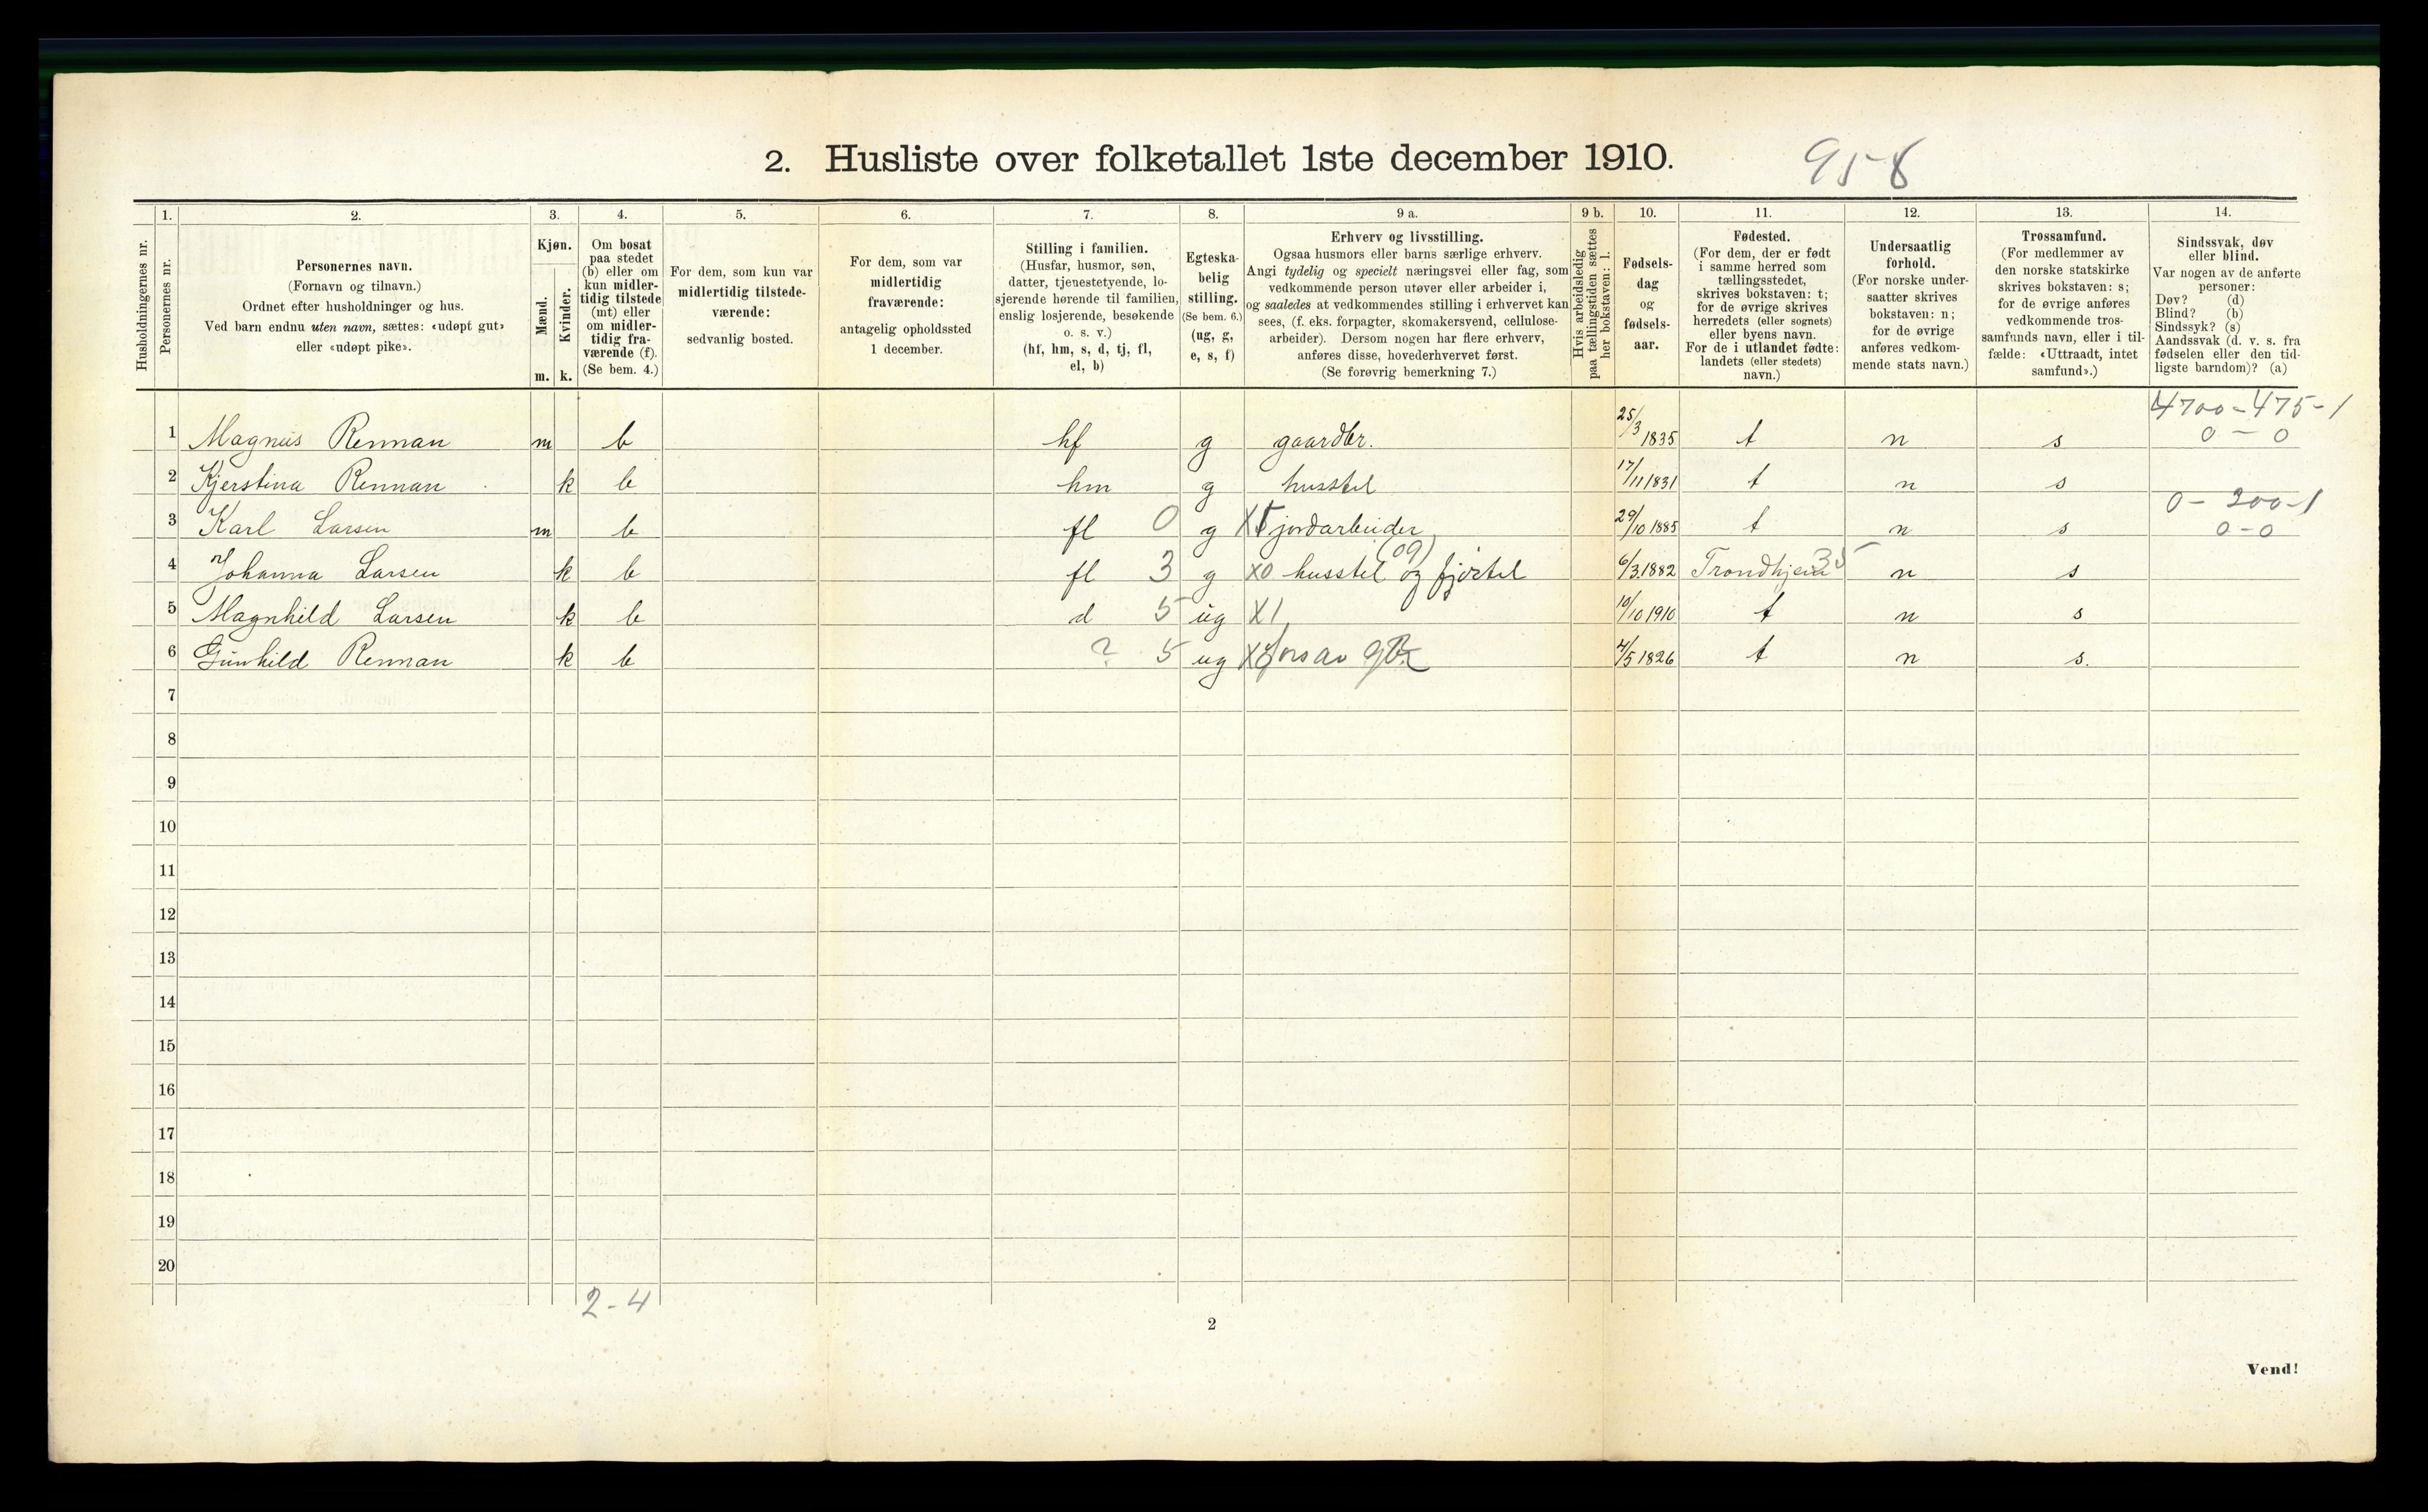 2. Husliste over folketallet 1ste december 1910. 958
1. 2. 3. 4. 5. 6. 7. 8. 9 a. 9 b. 10. 11. 12. 13. 14.
Husholdningernes nr.
Personernes nr.
Personernes navn.
(Fornavn og tilnavn.)
Ordnet efter husholdninger og hus.
Ved barn endnu uten navn, sættes: «udøpt gut»
eller «udøpt pike».
Kjøn.
Mænd.
Kvinder.
m. k.
Om bosat
paa stedet
(b) eller om
kun midler-
tidig tilstede
(mt) eller
om midler-
tidig fra-
værende (f).
(Se bem. 4.)
For dem, som kun var
midlertidig tilstede-
værende:
sedvanlig bosted.
For dem, som var
midlertidig
fraværende:
antagelig opholdssted
1 december.
Stilling i familien.
(Husfar, husmor, søn,
datter, tjenestetyende, lo-
sjerende hørende til familien,
enslig losjerende, besøkende
o. s. v.)
(hf, hm, s, d, tj, fl,
el, b)
Egteska-
belig
stilling.
(Se bem. 6.)
(ug, g,
e, s, f)
Erhverv og livsstilling.
Ogsaa husmors eller barns særlige erhverv.
Angi tydelig og specielt næringsvei eller fag, som
vedkommende person utøver eller arbeider i,
og saaledes at vedkommendes stilling i erhvervet kan
sees, (f. eks. forpagter, skomakersvend, cellulose-
arbeider). Dersom nogen har flere erhverv,
anføres disse, hovederhvervet først.
(Se forøvrig bemerkning 7.)
Hvis arbeidsledig
paa tællingstiden sættes
her bokstaven: l.
Fødsels-
dag
og
fødsels-
aar.
Fødested.
(For dem, der er født
i samme herred som
tællingsstedet,
skrives bokstaven: t;
for de øvrige skrives
herredets (eller sognets)
eller byens navn.
For de i utlandet fødte:
landets (eller stedets)
navn.)
Undersaatlig
forhold.
(For norske under-
saatter skrives
bokstaven: n;
for de øvrige
anføres vedkom-
mende stats navn.)
Trossamfund.
(For medlemmer av
den norske statskirke
skrives bokstaven: s;
for de øvrige anføres
vedkommende tros-
samfunds navn, eller i til-
fælde: «Uttraadt, intet
samfund».)
Sindssvak, døv
eller blind.
Var nogen av de anførte
personer:
Døv? (d)
Blind? (b)
Sindssyk? (s)
Aandssvak (d. v. s. fra
fødselen eller den tid-
ligste barndom)? (a)
4700-475-1
1 Magnus Rennan m b hf g gaardbr. 25/3 1835 t n s 0 - 0
2 Kjerstina Rennan k b hm g husstel 17/11 1831 t n s
0 - 200-1
3 Karl Larsen m b fl 0 g X jordarbeider 29/10 1885 t n s 0-0
(og)
4 Johanna Larsen k b fl 3 g XO husstel og fjøstel 6/3 1882 Trondhjem 35 n s
5 Magnhild Larsen k b d 5 ug X1 10/10 1910 t n s
6 Gunhild Rennan k b ? 5 ug 4/5 1826 t n s.
7
8
9
10
11
12
13
14
15
16
17
18
19
20
2-4
2
Vend!